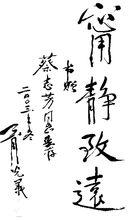 甯静致遠
书赠
蔡志芳同志
二〇〇三年冬